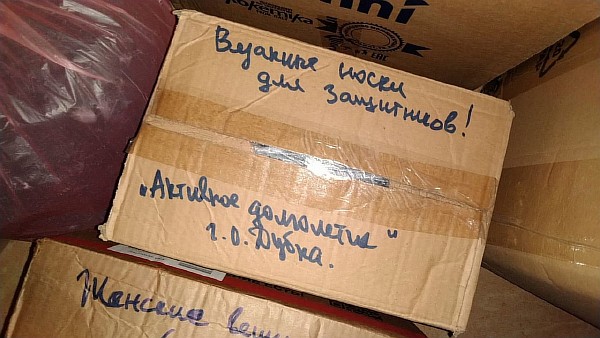 Вязаные носки
для защитников!
„Активное долголетие"
г.о. Дубна.
Женские вещи